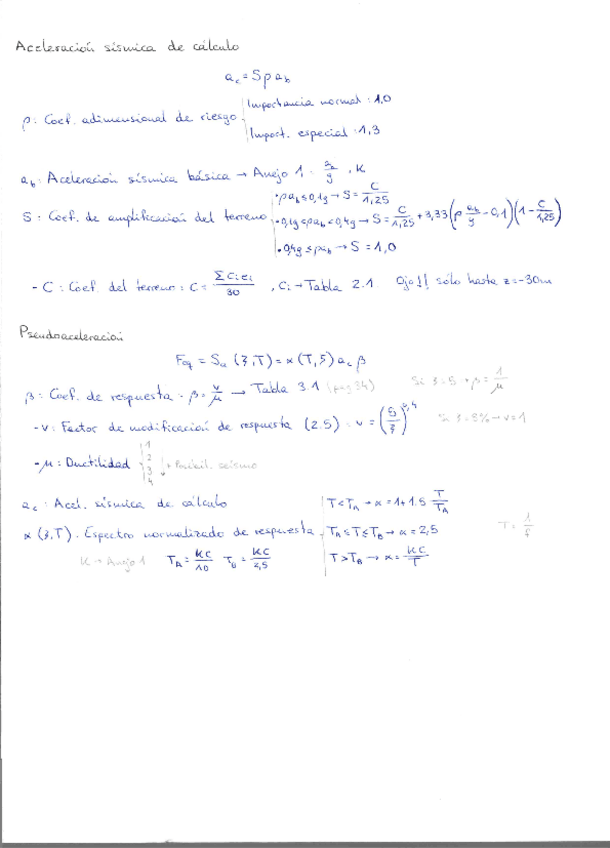 Aceleración sísmica de cálculo
a_c = S ρ a_b
ρ: Coef. adimensional de riesgo
Importancia normal: 1,0
Import. especial: 1,3
a_b: Aceleración sísmica básica → Anejo 1: a_b/g, K
S: Coef. de amplificación del terreno
· ρa_b ≤ 0,1g → S = C/1,25
· 0,1g ≤ ρa_b < 0,4g → S = C/1,25 + 3,33(ρ a_b/g - 0,1)(1 - C/1,25)
· 0,4g ≤ ρa_b → S = 1,0
- C: Coef. del terreno: C = ΣC_i e_i/30, C_i → Tabla 2.1. Ojo!! sólo hasta z=-30m
Pseudoaceleración
F_eq = S_a (ζ,T) = α(T,5) a_c β
β: Coef. de respuesta · β = ν/μ → Tabla 3.1 (pag 34) Si ζ=5 → β = 1/μ
- ν: Factor de modificación de respuesta (2.5): ν = (5/ζ)^0,4 Si ζ=5% → ν=1
- μ: Ductilidad
1
2
3
4
a_c: Acel. sísmica de cálculo
α(ζ,T). Espectro normalizado de respuesta
T<T_A → α = 1+1.5 T/T_A
T_A ≤ T ≤ T_B → α = 2,5
T>T_B → α = KC/T
T = 1/f
K → Anejo 1 T_A = KC/10 T_B = KC/2,5